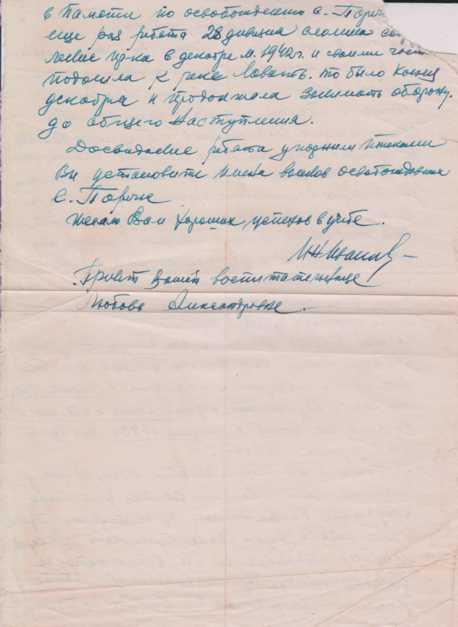 в памяти по освобождению с. Пори
еще раз ребята 28 дивизия сломила со
ление пр-ка в декабре м. 1942 г. и своими част
подошла к реке Ловать. то было конец
декабря и продолжала занимать оборону.
до общего наступления.
Досвидание ребята
Вы установите имена воинов освобождения
с. Поричье
желаю Вам хороших успехов в учебе.
Привет вашей воспитательнице
Любовь Александровне.